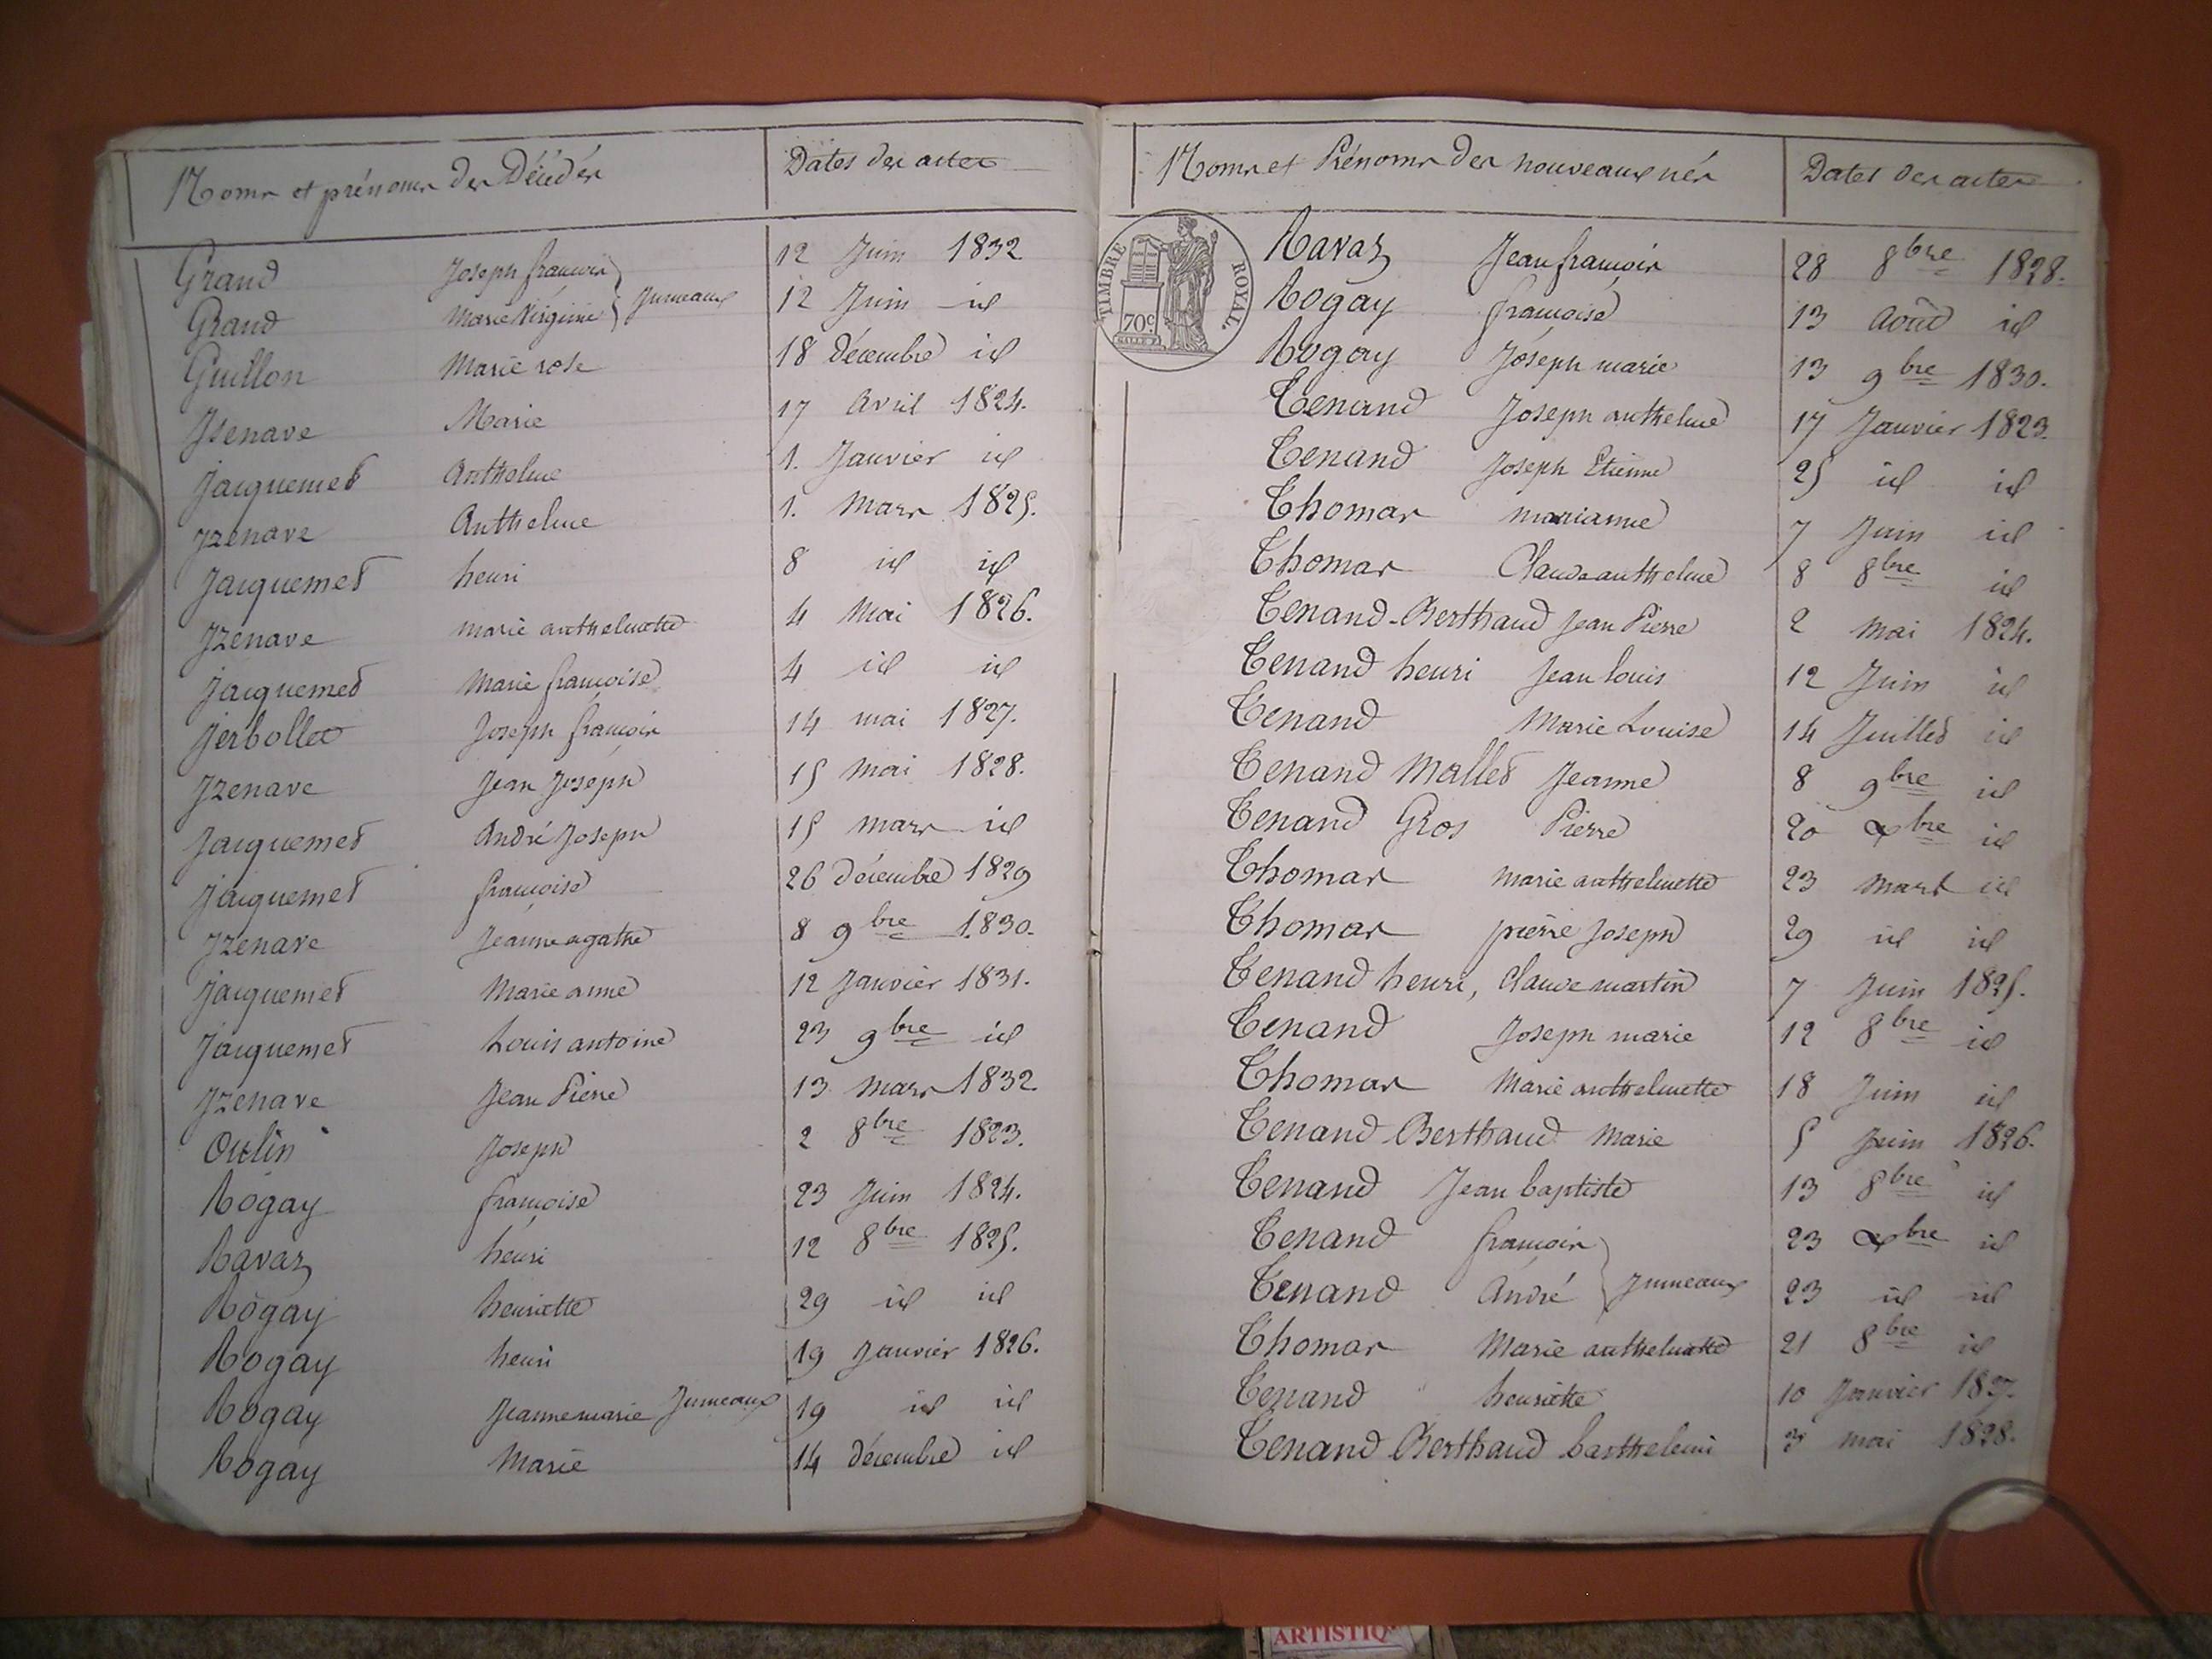 Noms et prénoms des Décédés Dates des actes
Grand Joseph françois 12 Juin 1832
Jumeaux
Grand Marie Virginie 12 Juin id
Guillon Marie rose 18 décembre id
Jsenave Marie 17 Avril 1824.
Jacquemet Anthelme 1. Janvier id
Jzenave Anthelme 1. Mars 1825.
Jacquemet henri 8 id id
Jzenave marie anthelmette 4 Mai 1826.
Jacquemet Marie françoise 4 id id
Jerbollet Joseph françois 14 mai 1827.
Jzenave Jean Joseph 15 Mai 1828.
Jacquemet André Joseph 15 mars id
Jacquemet françoise 26 décembre 1829
Jzenave Jeanne agathe 8 9bre 1830.
Jacquemet Marie anne 12 Janvier 1831.
Jacquemet Louis antoine 23 9bre id
Jzenave Jean Pierre 13 Mars 1832.
Outin Joseph 2 8bre 1823.
Rogay françoise 23 Juin 1824.
Ravaz henri 12 8bre 1825.
Rogay henriette 29 id id
Rogay henri 19 Janvier 1826.
Rogay Jeanne marie Jumeaux 19 id id
Rogay Marie 14 décembre id
Noms et Prénoms des nouveaux nés Dates des actes
TIMBRE ROYAL.
70c.
Ravaz Jean françois 28 8bre 1828.
Rogay françoise 13 Août id
Rogay Joseph marie 13 9bre 1830.
Tenand Joseph anthelme 17 Janvier 1823.
Tenand Joseph Etienne 25 id id
Thomas marianne 7 Juin id
Thomas Claude anthelme 8 8bre id
Tenand-Berthaud Jean Pierre 2 Mai 1824.
Tenand henri Jean louis 12 Juin id
Tenand Marie Louise 14 Juillet id
Tenand Mallet Jeanne 8 9bre id
Tenand Gros Pierre 20 xbre id
Thomas Marie anthelmette 23 Mars id
Thomas pierre Joseph 29 id id
Tenand henri, Claude martin 7 Juin 1825.
Tenand Joseph marie 12 8bre id
Thomas Marie anthelmette 18 Juin id
Tenand Berthaud Marie 5 Juin 1826.
Tenand Jean baptiste 13 8bre id
Tenand françois 23 xbre id
Jumeaux
Tenand André 23 id id
Thomas Marie anthelmette 21 8bre id
Tenand henriette 10 Janvier 1827.
Tenand Berthaud barthelemi 3 mai 1828.
ARTISTIQ